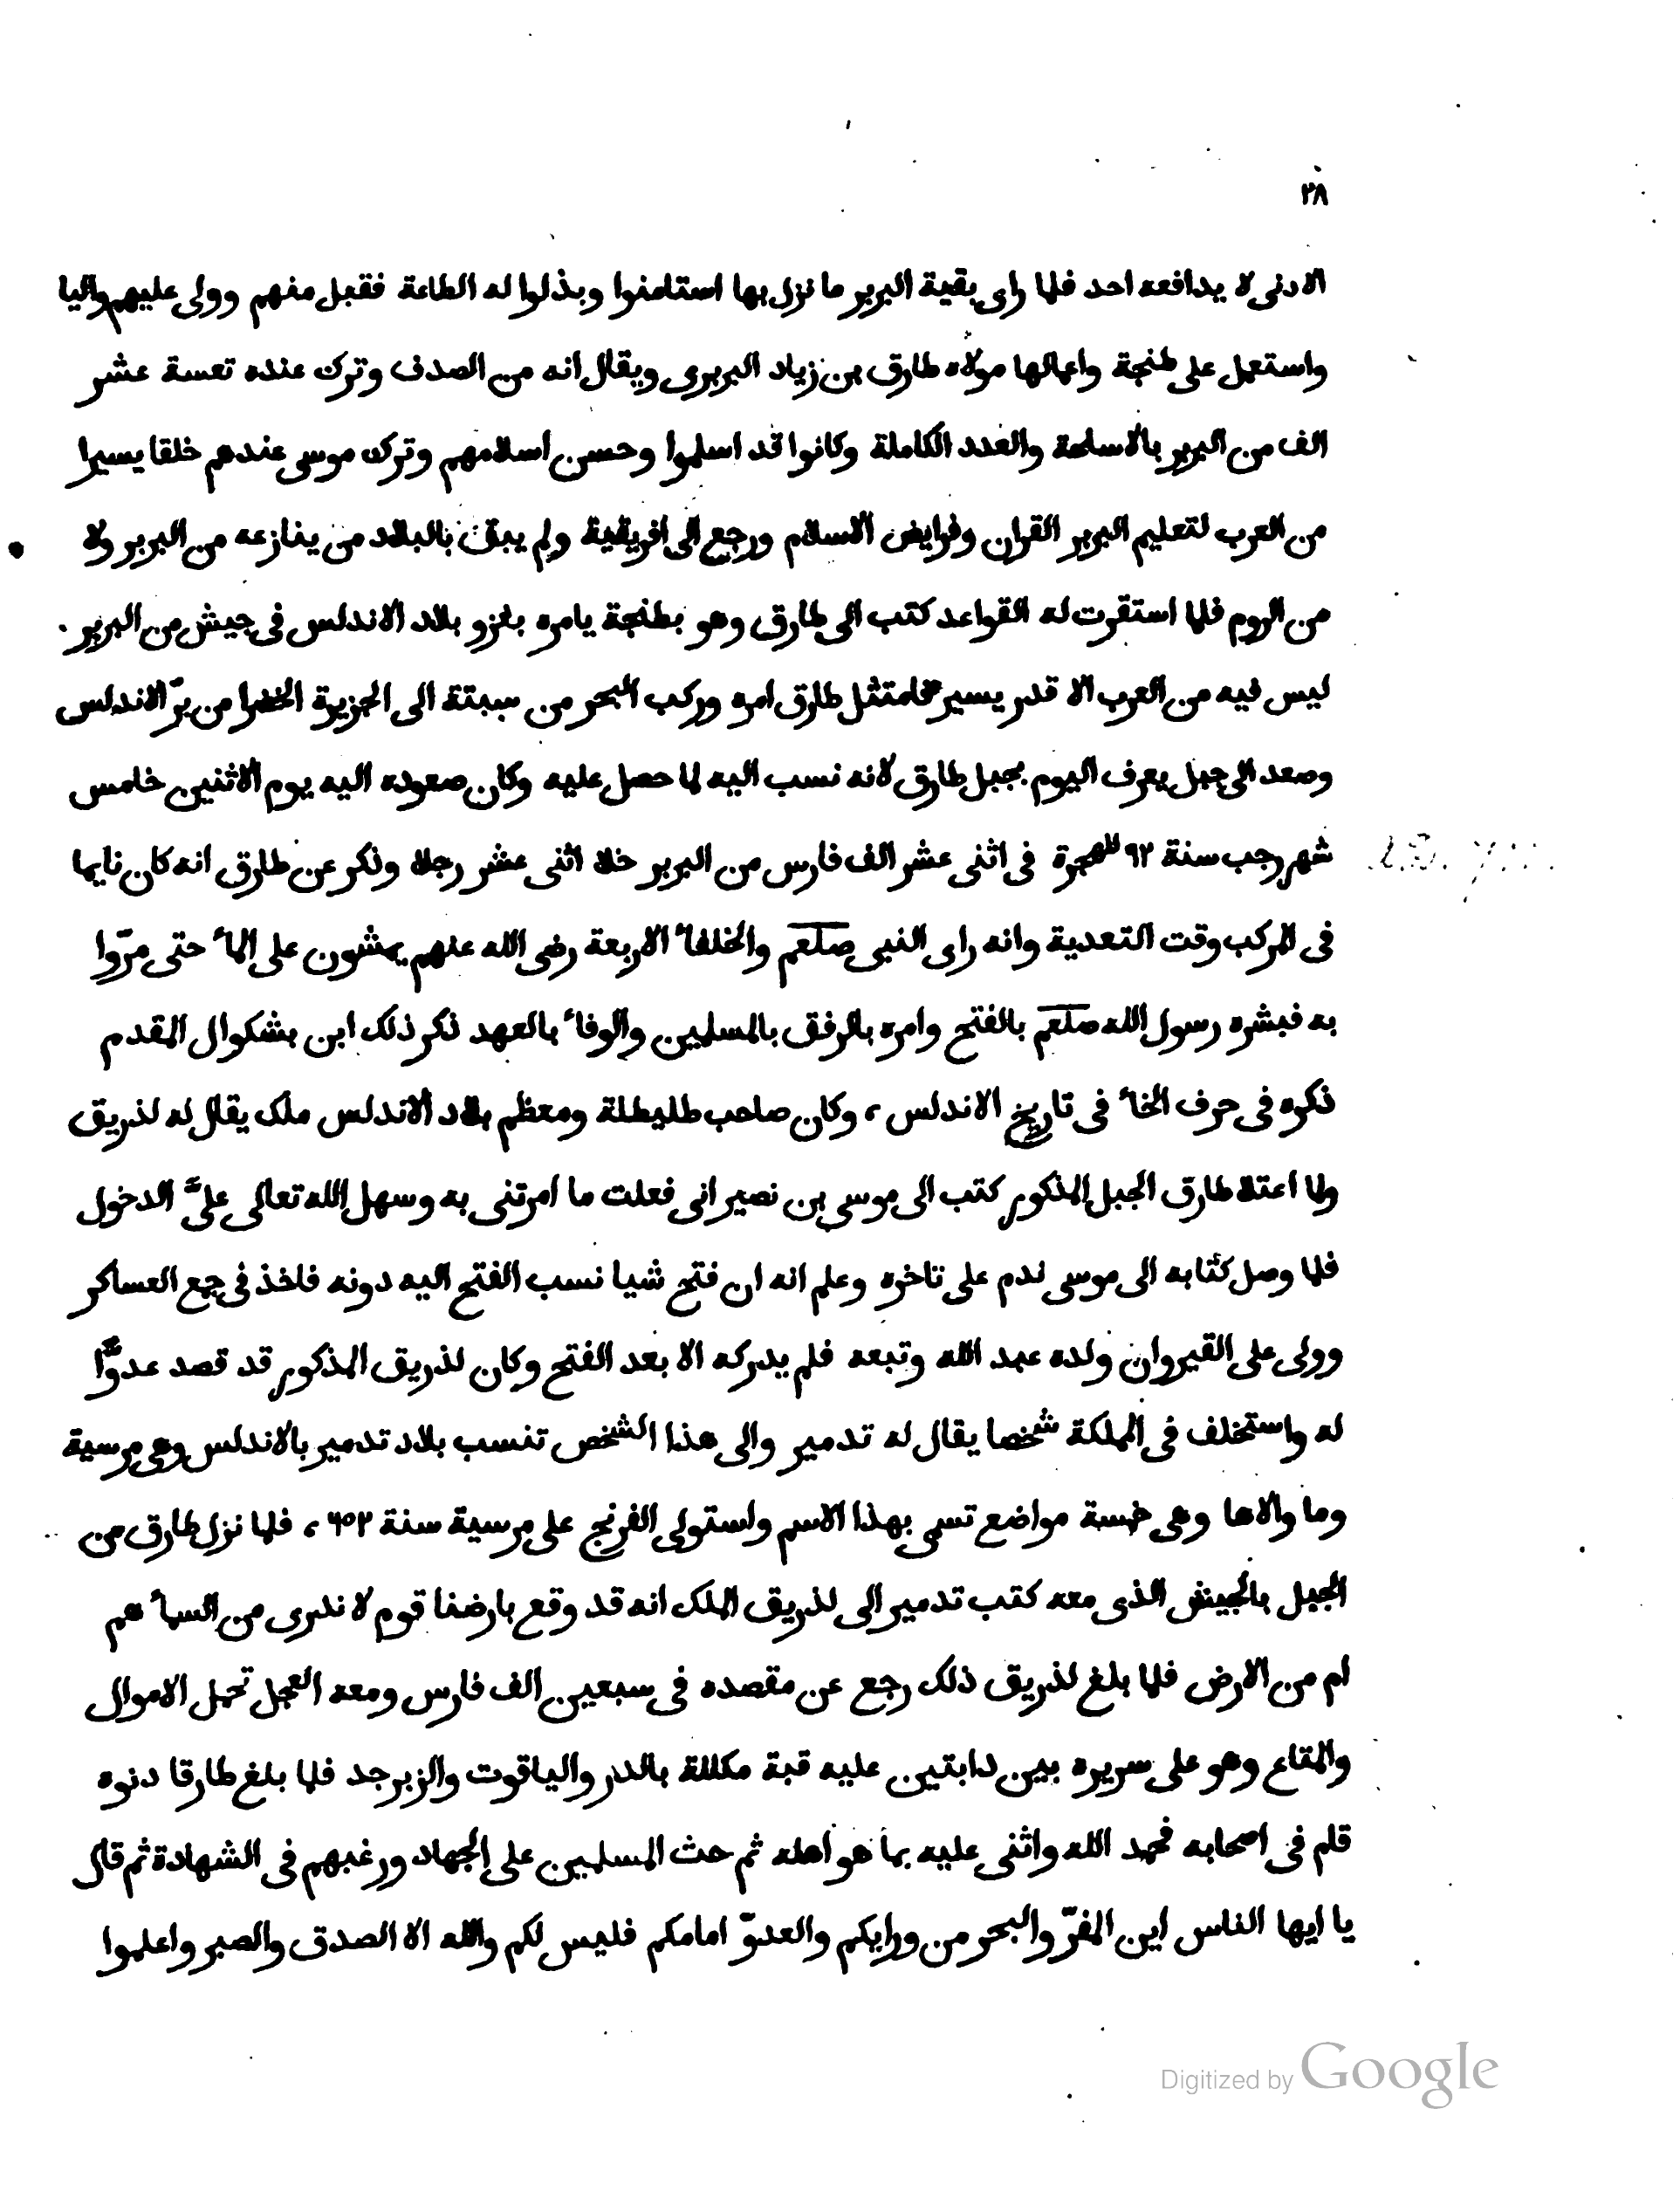 ٢٨
الادنى لا يدافعه احد فلما راى بقية البربر ما نزل بها استامنوا وبذلوا له الطاعة فقبل منهم وولى عليهم واليا
واستعمل على طنجة واعمالها مولاه طارق بن زياد البربرى ويقال انه من الصدف وترك عنده تعسة عشر
الف من البربر بالاسلحة والعدد الكاملة وكانوا قد اسلموا وحسن اسلامهم وترك موسى عندهم خلقا يسيرا
من العرب لتعليم البربر القران وفرايض الاسلام ورجع الى افريقية ولم يبق بالبلاد من ينازعه من البربر ولا
من الروم فلما استقرت له القواعد كتب الى طارق وهو بطنجة يامره بغزو بلاد الاندلس فى جيش من البربر
ليس فيه من العرب الا قدر يسير فامتثل طارق امره وركب البحر من سبتة الى الجزيرة الخضرا من برّ الاندلس
وصعد الى جبل يعرف اليوم بجبل طارق لانه نسب اليه لما حصل عليه وكان صعوده اليه يوم الاثنين خامس
شهر رجب سنة ٩٢ للهجرة فى اثنى عشر الف فارس من البربر خلا اثنى عشر رجلا وذكر عن طارق انه كان نايما
فى المركب وقت التعدية وانه راى النبى صلعم والخلفاء الاربعة رضى الله عنهم يمشون على الماء حتى مرّوا
به فبشره رسول الله صلعم بالفتح وامره بالرفق بالمسلمين والوفاء بالعهد ذكر ذلك ابن بشكوال المقدم
ذكره فى حرف الخاء فى تاريخ الاندلس ، وكان صاحب طليطلة ومعظم بلاد الاندلس ملك يقال له لذريق
ولما اعتلا طارق الجبل المذكور كتب الى موسى بن نصير انى فعلت ما امرتنى به وسهل الله تعالى علىَّ الدخول
فلما وصل كتابه الى موسى ندم على تاخره وعلم انه ان فتح شيا نسب الفتح اليه دونه فاخذ فى جمع العساكر
وولى على القيروان ولده عبد الله وتبعه فلم يدركه الا بعد الفتح وكان لذريق المذكور قد قصد عدوًّا
له واستخلف فى المملكة شخصا يقال له تدمير والى هذا الشخص تنسب بلاد تدمير بالاندلس وهى مرسية
وما والاها وهى خمسة مواضع تسمى بهذا الاسم واستولى الفرنج على مرسية سنة ٦٥٢ ، فلما نزل طارق من
الجبل بالجيش الذى معه كتب تدمير الى لذريق الملك انه قد وقع بارضنا قوم لا ندرى من السماء هم
ام من الارض فلما بلغ لذريق ذلك رجع عن مقصده فى سبعين الف فارس ومعه العجل تحمل الاموال
والمتاع وهو على سريره بين دابتين عليه قبة مكللة بالدر والياقوت والزبرجد فلما بلغ طارقا دنوه
قام فى اصحابه فحمد الله واثنى عليه بما هو اهله ثم حث المسلمين على الجهاد ورغبهم فى الشهادة ثم قال
يا ايها الناس اين المفرّ والبحر من ورايكم والعدوّ امامكم فليس لكم والله الا الصدق والصبر واعلموا
Digitized by Google